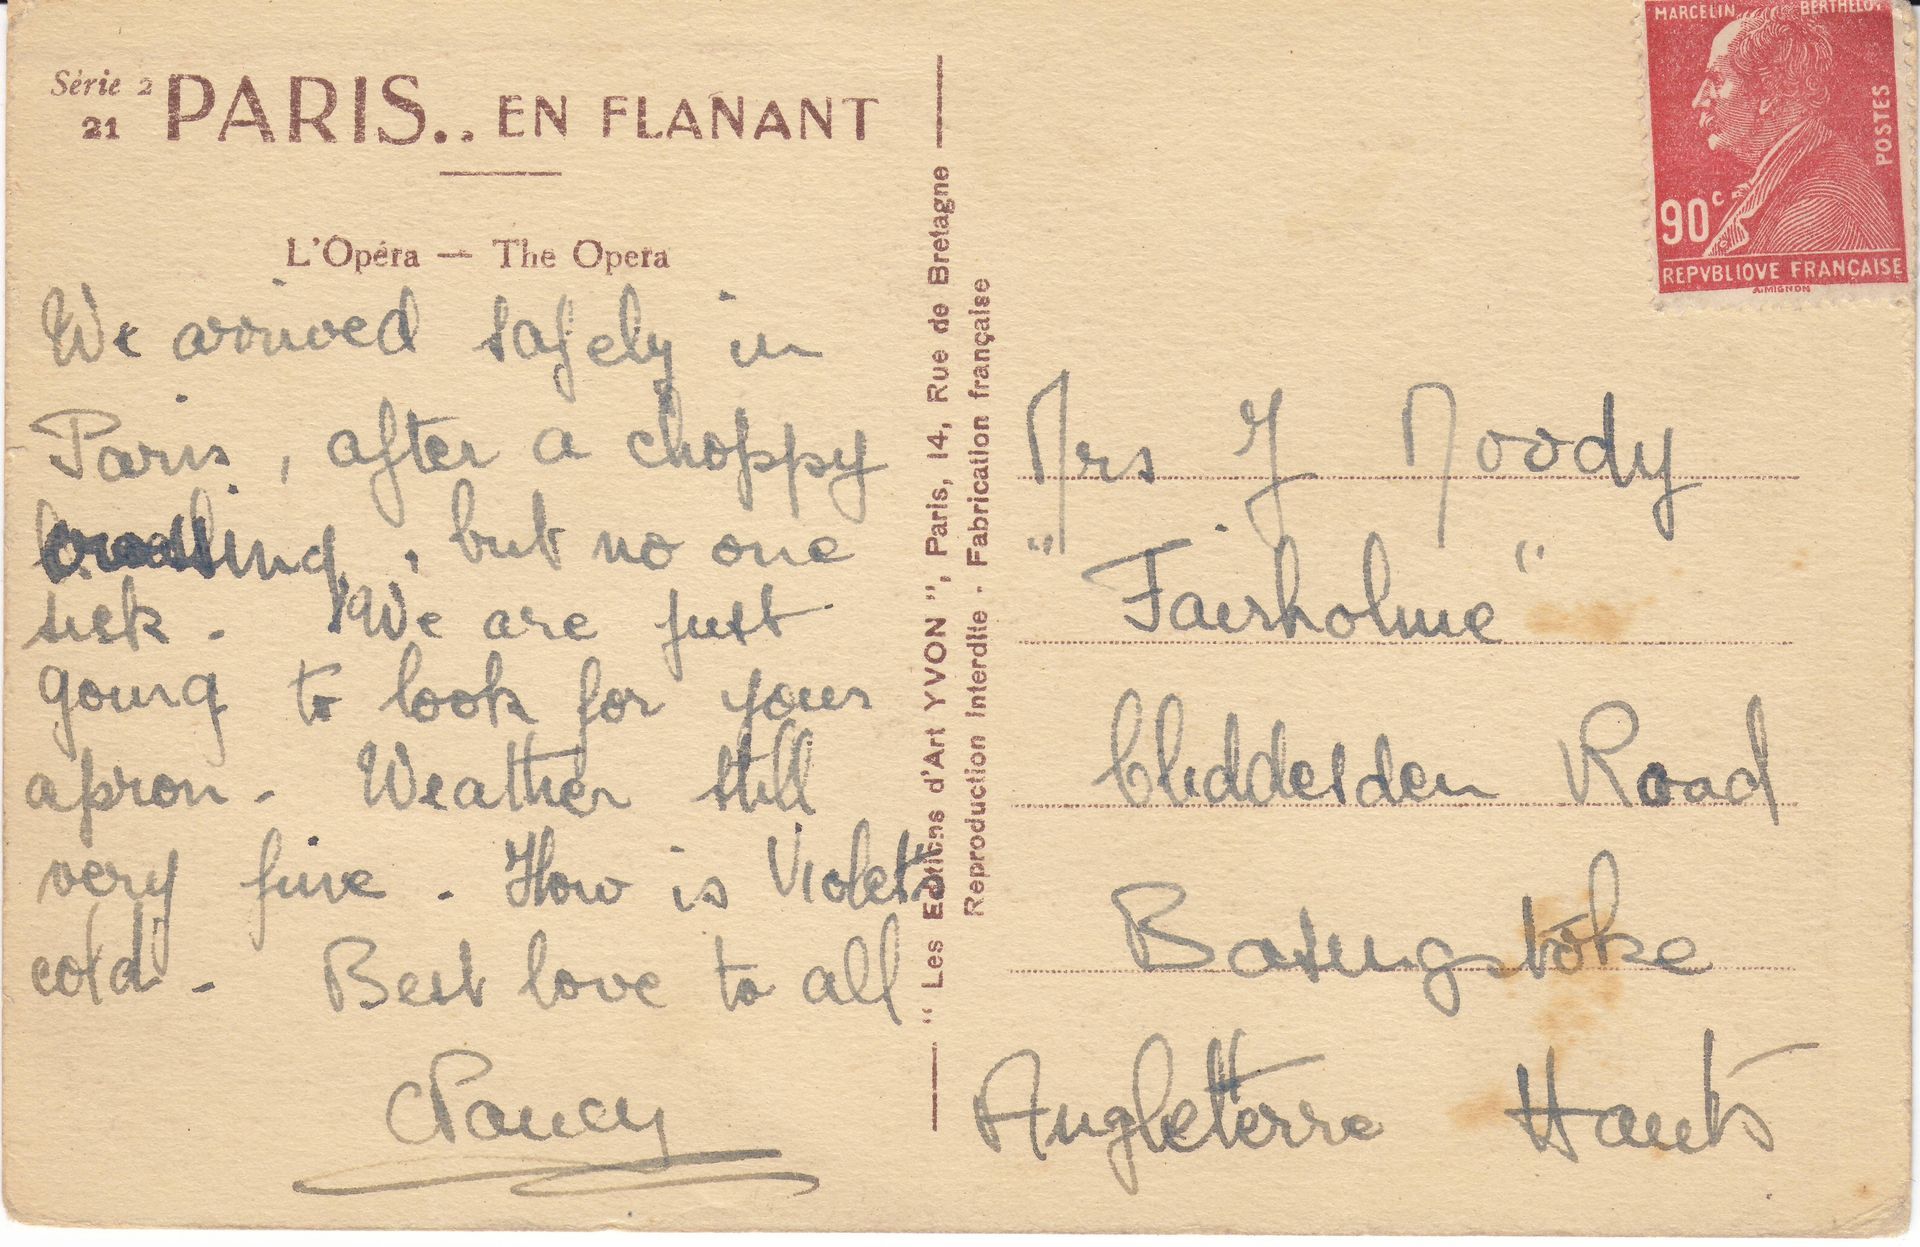 Série 2
21
PARIS.. EN FLANANT
L'Opéra — The Opera
We arrived safely in
Paris, after a choppy
crossing, but no one
sick. We are just
going to look for your
apron. Weather still
very fine. How is Violets
cold. Best love to all
" Les Editions d'Art YVON ", Paris, 14, Rue de Bretagne
Reproduction Interdite - Fabrication française
MARCELIN BERTHELOT
POSTES
90c
REPVBLIQVE FRANÇAISE
A.MIGNON
Mrs J Moody
"Fairholme"
Cliddesden Road
Basingstoke
Angleterre Hants